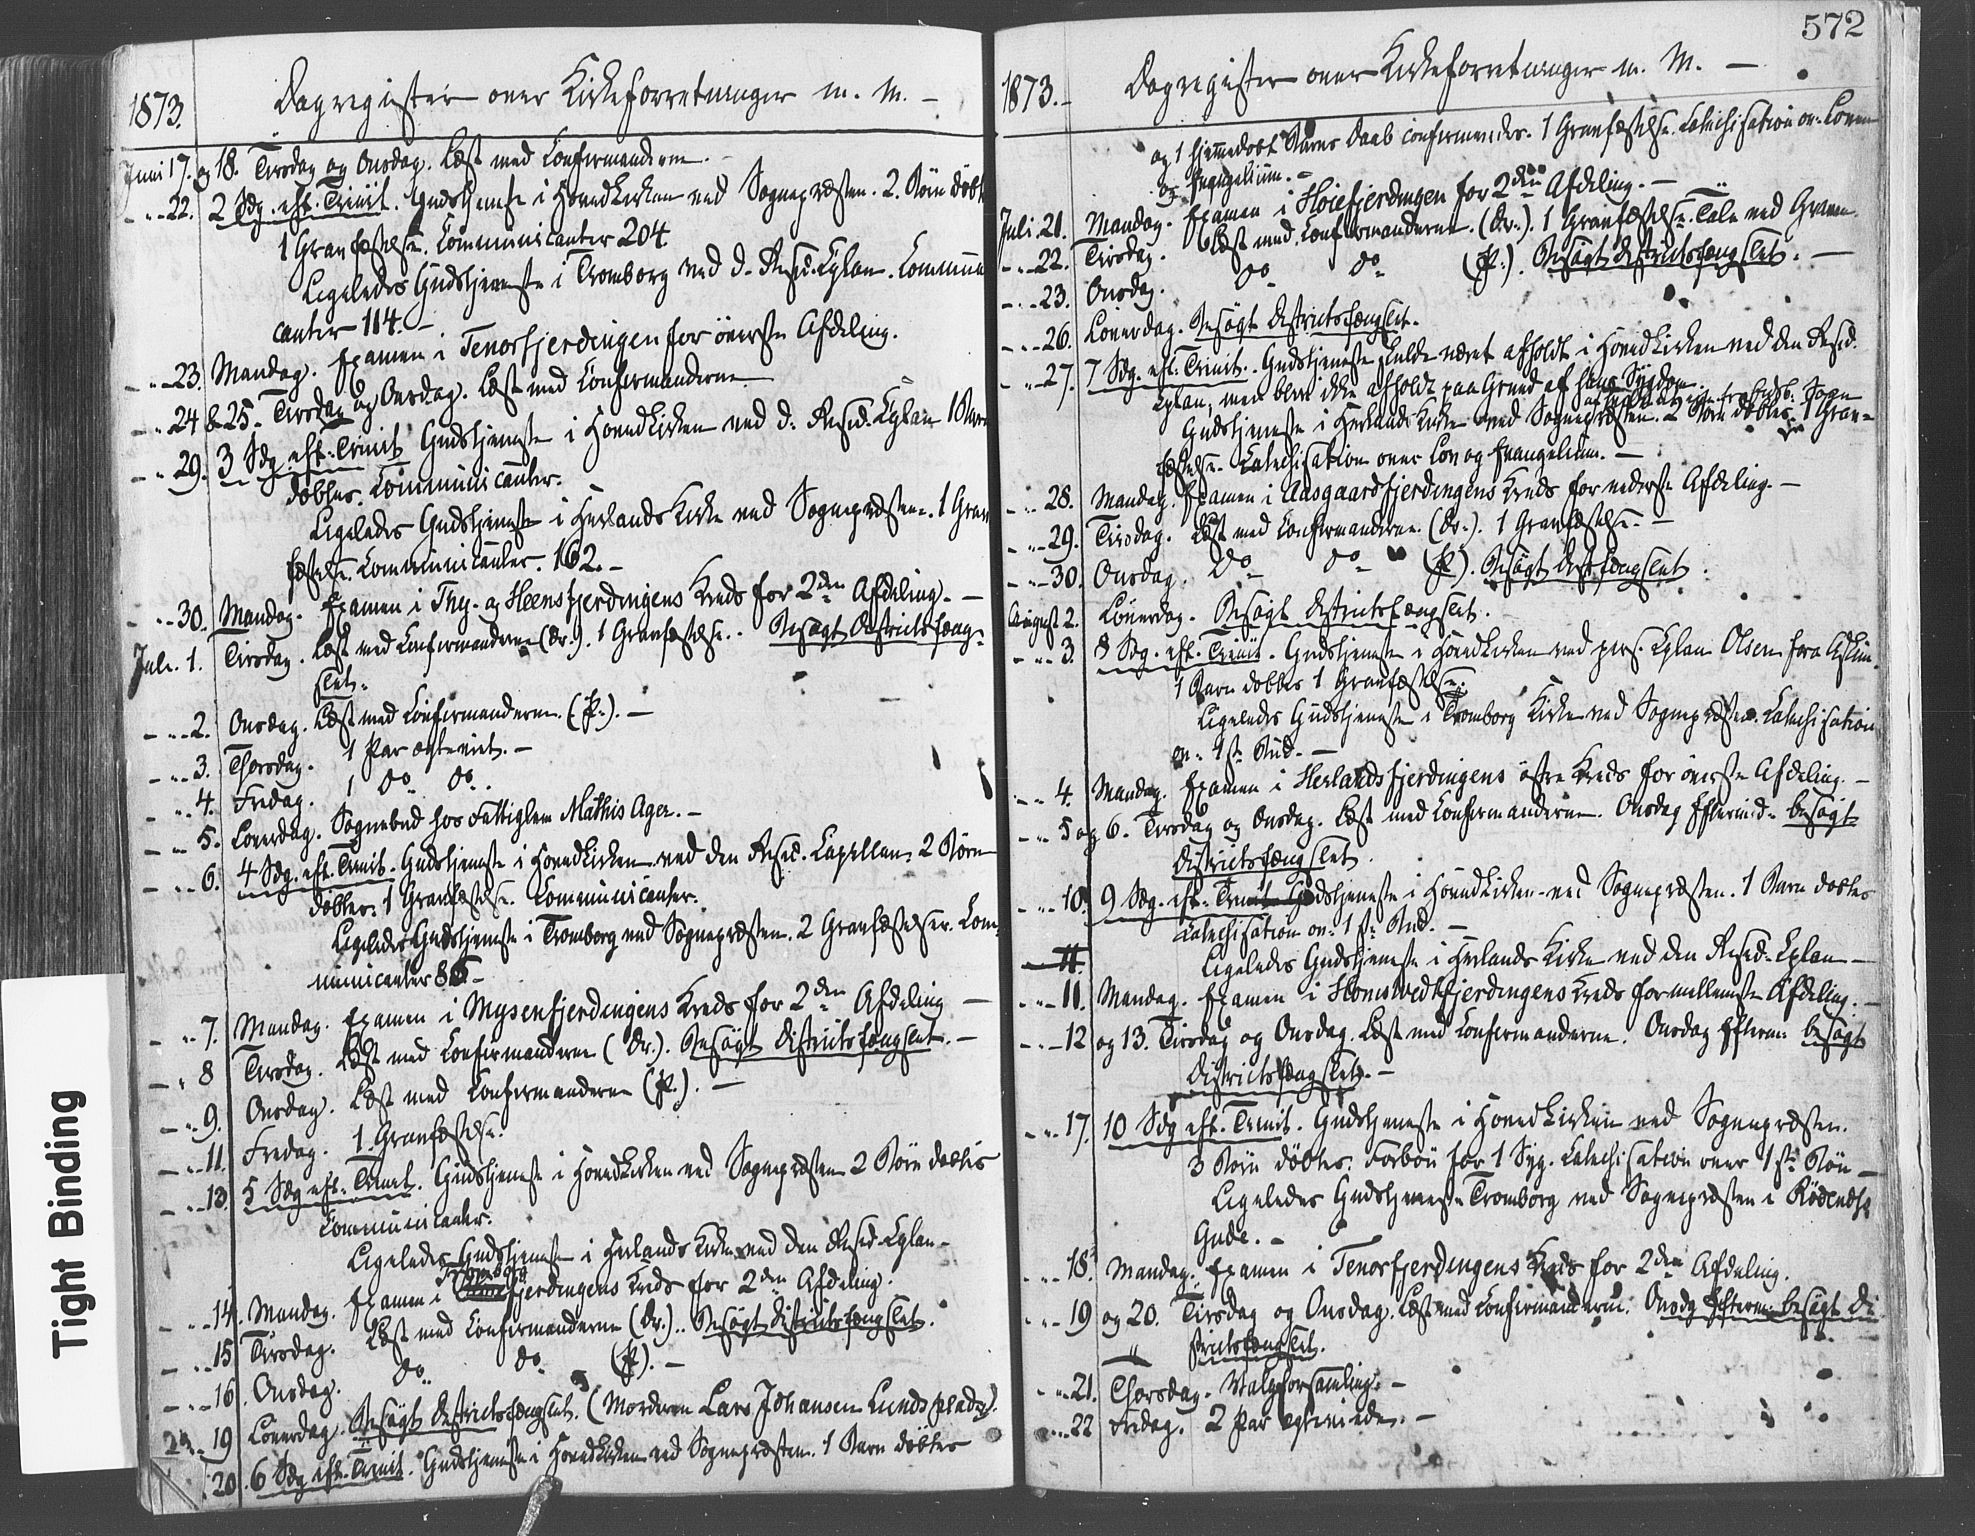 1873. Dagregister over Kirkeforretninger m. M. –
Juni 17. og 18. Tirsdag og Onsdag. Læst med Confirmanderne.
– „ – 22. 2 Sdg. eft. Trinit. Gudstjeneste i Hovedkirken ved Sognepræsten. 2. Børn døbt
1 Gravfæstelse. Communicanter 204.
Ligeledes Gudstjeneste i Tromborg ved d. Resid. Cplan. Communi
canter 114. –
– „ – 23. Mandag. Examen i Tenorfjerdingen for øverste Afdeling.
– „ 24 & 25. Tirsdag og Onsdag. Læst med Confirmanderne. –
– „ 29. 3 Sdg eft. Trinit. Gudstjeneste i Hovedkirken ved d. Resid. Cplan. 1 Barn
døbtes. Communicanter.
Ligeledes Gudstjeneste i Herlands Kirke ved Sognepræsten. 1 Grav
fæstelse. Communicanter. 162. –
– „ – 30. Mandag. Examen i Thy- og Heensfjerdingens Kreds for 2den Afdeling. –
Juli. 1. Tirsdag. Læst med Confirmanderne (Dr.). 1 Gravfæstelse. Besøgt Districtsfæng-
slet.
– „ – 2. Onsdag. Læst med Confirmanderne. (P.). –
– „ – 3. Thorsdag. 1 Par ægteviet. –
– „ 4. Fredag. 1 do do.
– „ 5. Løverdag. Sognebud hos Fattiglem Mathis Ager. –
– „ – 6. 4 Sdg. eft. Trinit. Gudstjeneste i Hovedkirken ved den Resid. Capellan. 2 Børn
døbtes. 1 Gravfæstelse. Communicanter.
Ligeledes Gudstjeneste i Tromborg ved Sognepræsten. 2 Gravfæstelser. Com-
municanter 86 –
– „ – 7. Mandag. Examen i Mysenfjerdingens Kreds for 2den Afdeling –
– „ 8 Tirsdag. Læst med Confirmanderne (Dr.). Besøgt Districtsfængslet. –
– „ – 9. Onsdag. Læst med Confirmanderne (P.). –
– „ – 11. Fredag. 1. Gravfæstelse.
– „ – 13. 5 Sdg eft. Trinit. Gudstjeneste i Hovedkirken ved Sognepræsten 2 Børn døbtes
Communicanter.
Ligeledes Gudstjeneste i Herlands Kirke ved den Resid. Cplan –
– „ – 14. Mandag. Examen i Tromborgfjerdingens Kreds for 2den Afdeling.
– „ – 15 Tirsdag. Læst med Confirmanderne (Dr.). Besøgt Districtsfængslet.
– „ – 16. Onsdag. do do (P.). –
– „ – 19 Løverdag. Besøgt Districtsfængslet. (Morderen Lars Johansen Lundsplads).
20. 6 Sdg eft. Trinit. Gudstjeneste i Hovedkirken ved Sognepræsten. 1 Barn døbtes
572
1873. – Dagregister over Kirkeforretninger m. M. –
og 1 hjemmedøbt Barns Daab confirmeredes. 1 Gravfæstelse. Catechisation ov. Loven
og Evangelium. –
Juli. 21. Mandag. Examen i Høiefjerdingen for 2den Afdeling. –
– „ – 22. Tirsdag. Læst med Confirmanderne. (Dr.). 1 Gravfæstelse. Tale ved Graven.
– „ – 23. Onsdag. do do (P.). Besøgt Districtsfængslet. –
– „ – 26. Løverdag. Besøgt Districtsfængslet.
– „ – 27. 7 Sdg. eft. Trinit. Gudstjeneste skulde været afholdt i Hovedkirken ved den Resid.
Cplan, men blev ikke afholdt paa Grund af hans Sygdom.
Gudstjeneste i Herlands Kirke ved Sognepræsten. 2 Børn døbtes. 1 Grav-
fæstelse. Catechisation over Lov og Evangelium. –
– „ – 28. Mandag. Examen i Aasgaardfjerdingens Kreds for nederste Afdeling. –
– „ – 29. Tirsdag. Læst med Confirmanderne. (Dr.). 1 Gravfæstelse. –
– „ – 30. Onsdag. do do (P.). Besøgt Distr.fængslet.
August 2. Løverdag. Besøgt Districtsfængslet.
– „ – 3. 8 Sdg. eft. Trinit. Gudstjeneste i Hovedkirken ved pers. Cplan Olsen fra Askim.
1 Barn døbtes 1 Gravfæstelse.
Ligeledes Gudstjeneste i Tromborg Kirke ved Sognepræsten. Catechisation
ov. 1ste Bud. –
– „ – 4. Mandag. Examen i Herlandsfjerdingens østre Kreds for øverste Afdeling. –
– „ 5 og 6. Tirsdag og Onsdag. Læst med Confirmanderne. Onsdag Efterm.d. besøgt
Districtsfængslet.
– „ – 10. 9 Sdg. eft. Trinit. Gudstjeneste i Hovedkirken ved Sognepræsten. 1 Barn døbtes
Catechisation ov. 1ste Bud. –
11. Ligeledes Gudstjeneste i Herlands Kirke ved den Resid. Cplan –
– „ – 11. Mandag. Examen i Homstvedtfjerdingens Kreds for mellemste Afdeling. –
– „ – 12 og 13. Tirsdag og Onsdag. Læst med Confirmanderne. Onsdag Efterm. besøgt
Districtsfængslet. –
– „ – 17. 10 Sdg eft. Trinit. Gudstjeneste i Hovedkirken ved Sognepræsten.
3 Børn døbtes. Forbøn for 1 Syg. Catechisation over 1ste Bøn –
Ligeledes Gudstjeneste Tromborg ved Sognepræsten i Rødenæs
Gude. –
– „ – 18. Mandag. Examen i Tenorfjerdingens Kreds for 2den Afdeling.
– „ – 19 og 20. Tirsdag og Onsdag. Læst med Confirmanderne. Onsdg Efterm. besøgt Di
strictsfængslet.
– „ – 21. Thorsdag. Valgforsamling. –
– „ – 22 Fredag. 2 Par ægteviede. –
Tight Binding